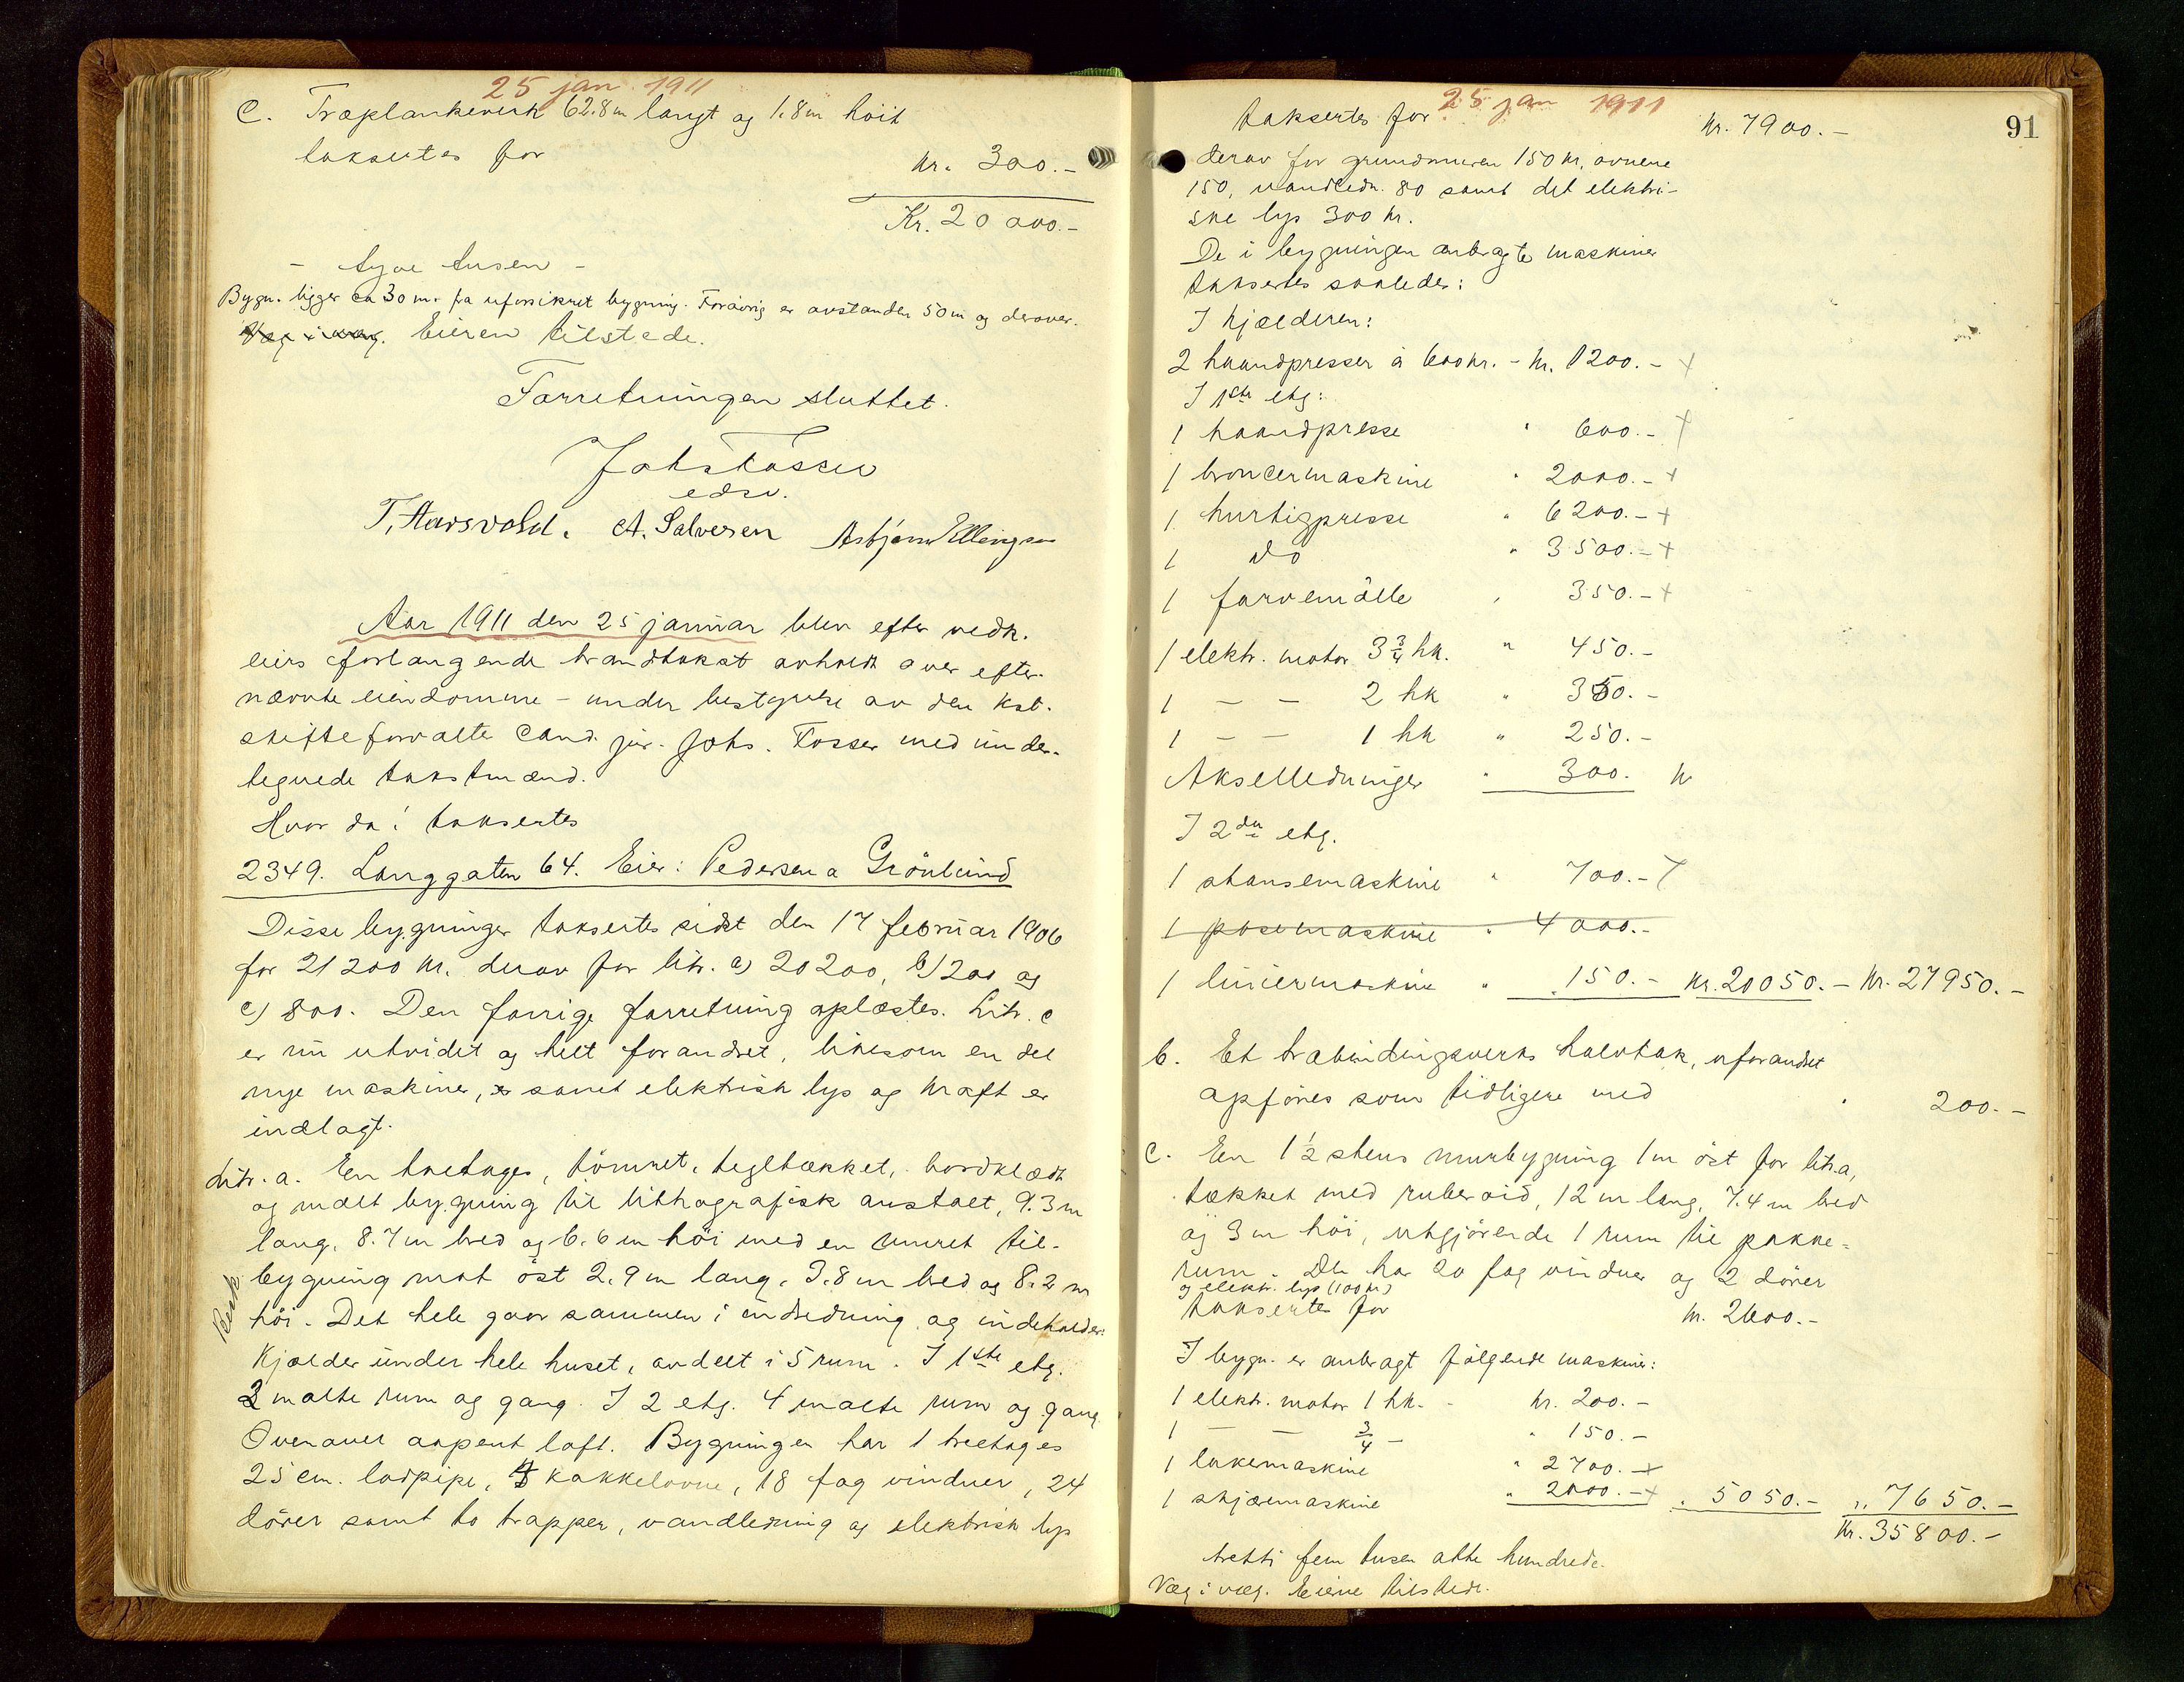 25 jan. 1911
C. Træplankeverk 62.8 m langt og 1.8 m höit
taksertes for kr. 300.-
Kr. 20 000.-
- tyve tusen -
Bygn. ligger ca 30 m. fra uforsikret bygning. Forövrig er avstanden 50 m og derover.
Væg i væg. Eieren tilstede.
Forretningen sluttet.
Johs Fosser
edsv.
T. Aarsvold. A. Salvesen Asbjörn Ellingsen
Aar 1911 den 25 januar blev efter vedk.
eiers forlangende brandtakst avholdt over efter-
nævnte eiendomme - under bestyrelse av den kst.
skifteforvalter Cand. jur. Johs. Fosser med under-
tegnede takstmænd.
Hvor da: taksertes
2349. Langgaten 64. Eier: Pedersen a Grönlund
Disse bygninger taksertes sidst den 17 februar 1906
for 21200 kr. derav for litr. a) 20200, b) 200 og
c) 800. Den forrige forretning oplæstes. Litr. c
er nu utvidet og helt forandret, likesom en del
nye maskiner, samt elektrisk lys og kraft er
indlagt.
Litr. a. En toetages, tömret, tegltækket, bordklædt
og malt bygning til lithografisk anstalt, 9.3 m
lang, 8.7 m bred og 6.6 m höi med en muret til-
bygning mot öst 2.9 m lang, 3.8 m bred og 8.2 m
höi. Det hele gaar sammen i indredning og indeholder:
Kjælder under hele huset, avdelt i 5 rum. I 1ste etg.
3 malte rum og gang. I 2 etg. 4 malte rum og gang
Ovenover aapent loft. Bygningen har 1 treetages
25 cm. lodpipe, 4 kakkelovne, 18 fag vinduer, 24
dörer samt to trapper, vandledning og elektrisk lys
25 jan 1911
91
taksertes for kr. 7900.-
derav for grundmuren 150 kr, ovnene
150, vandledn. 80 samt det elektri-
ske lys 300 kr.
De i bygningen anbragte maskiner
taksertes saaledes:
I kjælderen:
2 haandpresser à 600 kr. - kr. 1200.- +
I 1ste etg:
1 haandpresse " 600.- +
1 broncermaskine " 2000.- +
1 hurtigpresse " 6200.- +
1 do " 3500.- +
1 farvemölle " 350.- +
1 elektr. motor 3 3/4 hk. " 450.-
1 - - 2 hk " 350.-
1 - - 1 hk " 250.-
Akselledninger " 300.
I 2den etg.
1 stansemaskine " 700.- +
1 posemaskine " 4000.-
1 liniermaskine " 150.- kr. 20050.- kr. 27950.-
b. Et træbindingsverks halvtak, uforandret
opföres som tidligere med " 200.-
C. En 1 1/2 stens murbygning 1 m öst for litr. a,
tækket med ruberoid, 12 m lang, 7.4 m bred
og 3 m höi, utgjörende 1 rum til pakke-
rum. Den har 20 fag vinduer og 2 dörer
og elektr. lys (100 kr)
taksertes for kr. 2600.-
I bygn. er anbragt fölgende maskiner:
1 elektr. motor 1 hk. - kr. 200.-
1 - - 3/4 - " 150.-
1 lakemaskine " 2700.- +
1 skjæremaskine " 2000.- + " 5050.- " 7650.-
Kr. 35800.-
tretti fem tusen atte hundrede.
Væg i væg. Eierne tilstede.